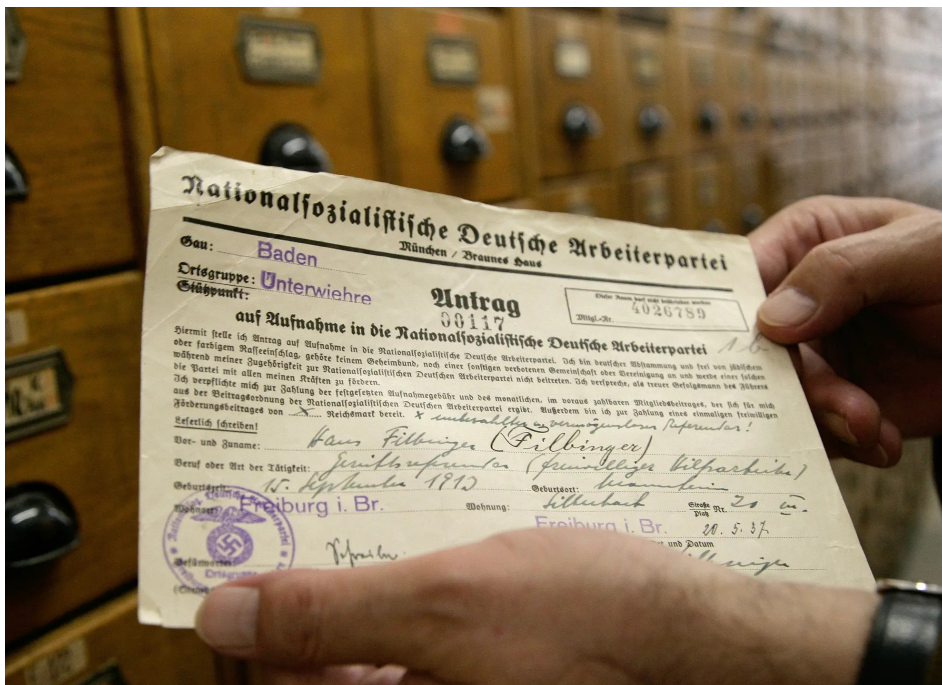 Nationalsozialistische Deutsche Arbeiterpartei
München / Braunes Haus
Gau: Baden
Ortsgruppe: Unterwiehre
Stützpunkt:
Antrag
00117
Dieser Raum darf nicht beschrieben werden
Mitgl.-Nr. 4026789
auf Aufnahme in die Nationalsozialistische Deutsche Arbeiterpartei
Hiermit stelle ich Antrag auf Aufnahme in die Nationalsozialistische Deutsche Arbeiterpartei. Ich bin deutscher Abstammung und frei von jüdischem
oder farbigem Rasseeinschlag, gehöre keinem Geheimbund, noch einer sonstigen verbotenen Gemeinschaft oder Vereinigung an und werde einer solchen
während meiner Zugehörigkeit zur Nationalsozialistischen Deutschen Arbeiterpartei nicht beitreten. Ich verspreche, als treuer Gefolgsmann des Führers
die Partei mit allen meinen Kräften zu fördern.
Ich verpflichte mich zur Zahlung der festgesetzten Aufnahmegebühr und des monatlichen, im voraus zahlbaren Mitgliedsbeitrages, der sich für mich
aus der Beitragsordnung der Nationalsozialistischen Deutschen Arbeiterpartei ergibt. Außerdem bin ich zur Zahlung eines einmaligen freiwilligen
Förderungsbeitrages von x Reichsmark bereit. x unbezahlter u. vermögensloser Referendar!
Leserlich schreiben!
Vor- und Zuname: Hans Filbinger (Filbinger)
Beruf oder Art der Tätigkeit: Gerichtsreferendar (freiwilliger Hilfsarbeiter)
Geburtszeit: 15. September 1913 Geburtsort: Mannheim
Wohnort: Freiburg i. Br. Wohnung: Silberbach Straße Platz Nr. 20 III.
Freiburg i. Br. 20. 5. 37.
und Datum
Befürwortet
Ortsgruppe